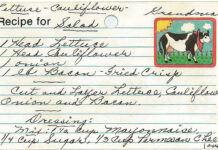 Lettuce - Cauliflower - Grandma
Recipe for Salad
1 Head Lettuce
1 Head Cauliflower
1 onion
1 lb. Bacon - Fried Crisp
Cut and Layer Lettuce, Cauliflower
Onion and Bacon.
Dressing:
Mayonnaise
1/4 cup Sugar, 1/3 cup Parmesan